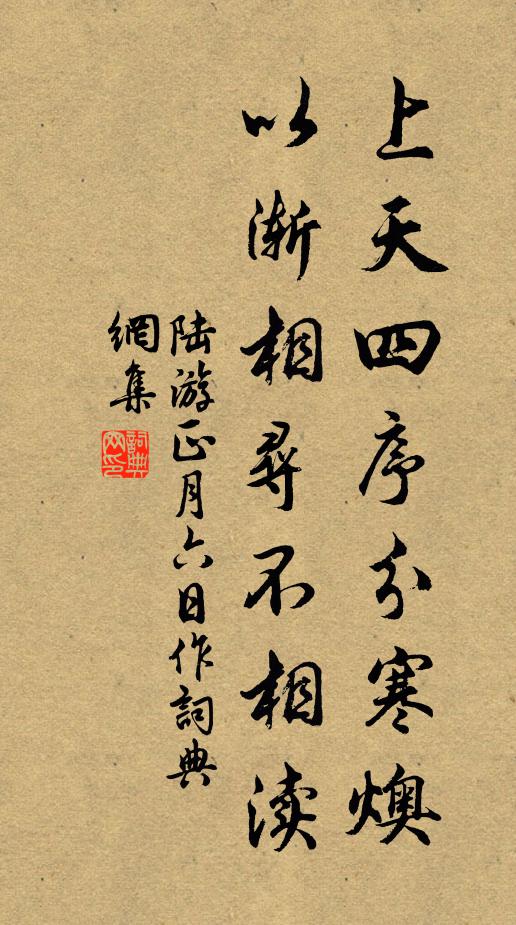 上天四序分寒燠
以渐相尋不相渎
陆游正月六日作詞典
網集
詞典
网印